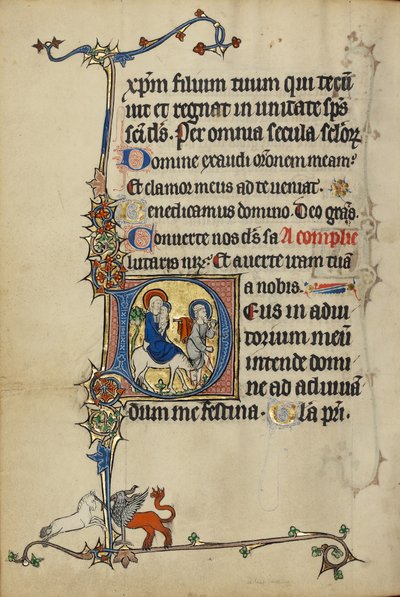 xp̄m filium tuum qui tecū
uit et regnat in unitate sp̄s
sc̄i d̄s. Per omnia secula sc̄lor̄ꝝ
Domine exaudi or̄onem meam:
Et clamor meus ad te ueniat.
Benedicamus domino. Deo gr̄as.
Conuerte nos d̄s sa A complie
lutaris nr̄: Et auerte iram tuā
a nobis.
Deus in adiu
torium meū
intende domi
ne ad adiuuā
dum me festina. Gl̄a p̄ri.